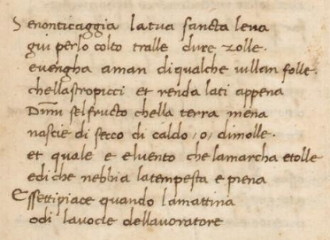 Senonticaggia latua sancta leva
giu perlo colto tralle dure zolle.
evengha aman diqualche villan folle.
chellastropicci et renda lati appena
Dimmi selfructo chella terra mena
nascie di secco di caldo /o/ dimolle.
et quale e elvento che lamarcha etolle
ediche nebbia latempesta e piena
Essettipiace quando lamattina
odi lavocie dellavoratore